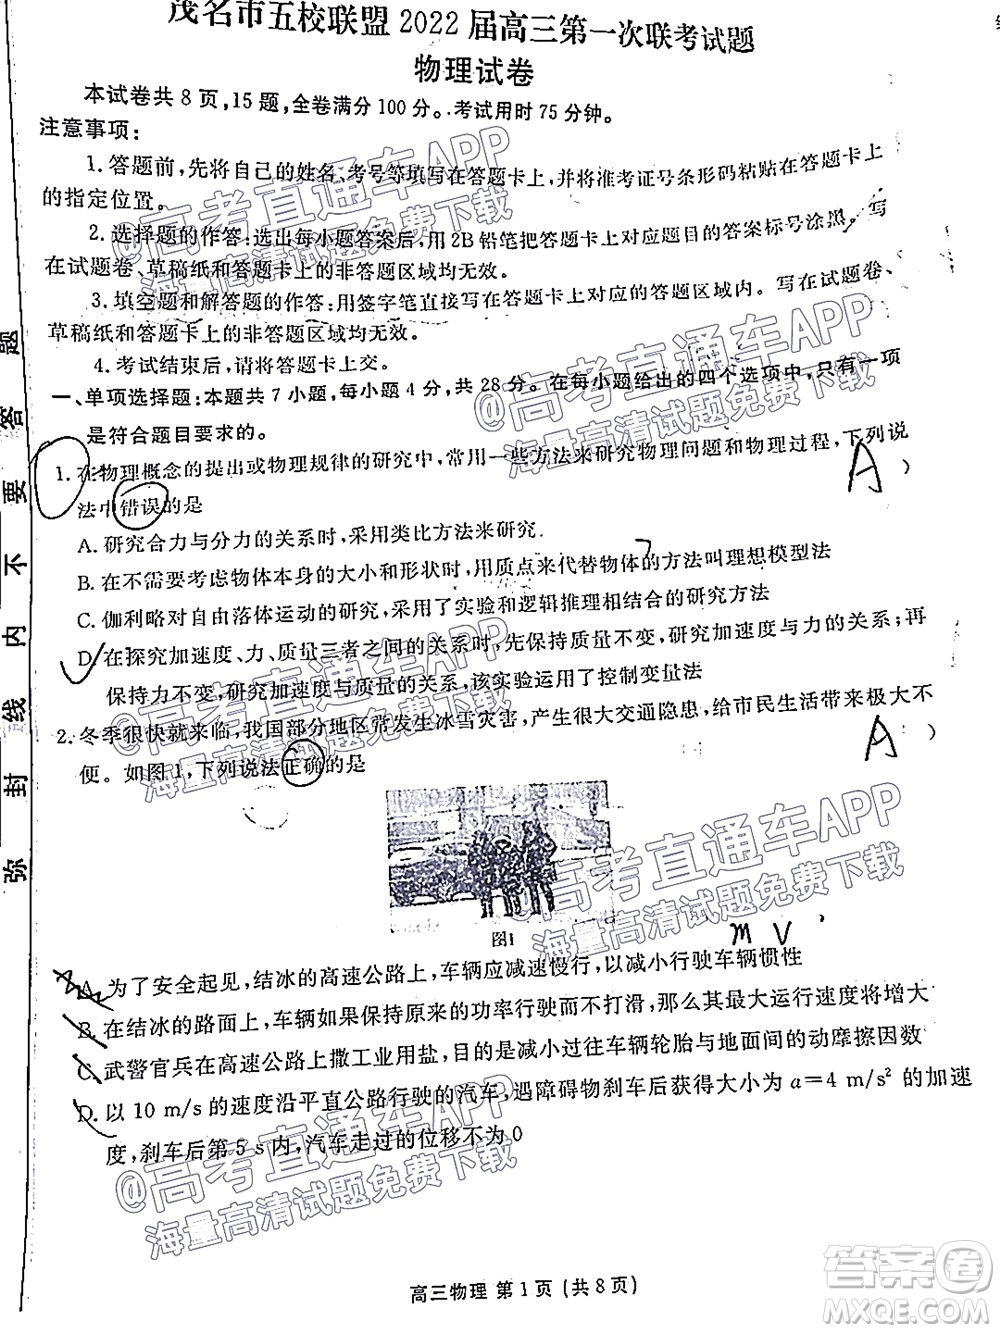 茂名市五校联盟 2022 届高三第一次联考试题
物理试卷
本试卷共 8 页,15 题,全卷满分 100 分。考试用时 75 分钟。
注意事项:
1. 答题前,先将自己的姓名、考号等填写在答题卡上,并将准考证号条形码粘贴在答题卡上
的指定位置。
2. 选择题的作答:选出每小题答案后,用 2B 铅笔把答题卡上对应题目的答案标号涂黑。写
在试题卷、草稿纸和答题卡上的非答题区域均无效。
3. 填空题和解答题的作答:用签字笔直接写在答题卡上对应的答题区域内。写在试题卷、
草稿纸和答题卡上的非答题区域均无效。
4. 考试结束后,请将答题卡上交。
一、单项选择题:本题共 7 小题,每小题 4 分,共 28 分。在每小题给出的四个选项中,只有一项
是符合题目要求的。
1. 在物理概念的提出或物理规律的研究中,常用一些方法来研究物理问题和物理过程,下列说
法中错误的是
A )
A. 研究合力与分力的关系时,采用类比方法来研究
B. 在不需要考虑物体本身的大小和形状时,用质点来代替物体的方法叫理想模型法
C. 伽利略对自由落体运动的研究,采用了实验和逻辑推理相结合的研究方法
D. 在探究加速度、力、质量三者之间的关系时,先保持质量不变,研究加速度与力的关系,再
保持力不变,研究加速度与质量的关系,该实验运用了控制变量法
2. 冬季很快就来临,我国部分地区常发生冰雪灾害,产生很大交通隐患,给市民生活带来极大不
便。如图 1,下列说法正确的是
A )
图1
m v
A. 为了安全起见,结冰的高速公路上,车辆应减速慢行,以减小行驶车辆惯性
B. 在结冰的路面上,车辆如果保持原来的功率行驶而不打滑,那么其最大运行速度将增大
C. 武警官兵在高速公路上撒工业用盐,目的是减小过往车辆轮胎与地面间的动摩擦因数
D. 以 10 m/s 的速度沿平直公路行驶的汽车,遇障碍物刹车后获得大小为 a=4 m/s² 的加速
度,刹车后第 5 s 内,汽车走过的位移不为 0
高三物理 第 1 页 (共 8 页)
弥 封 线 内 不 要 答 题
@高考直通车APP
海量高清试题免费下载
@高考直通车APP
海量高清试题免费下载
@高考直通车APP
海量高清试题免费下载
@高考直通车APP
海量高清试题免费下载
@高考直通车APP
海量高清试题免费下载
答案圈
MXQE.COM